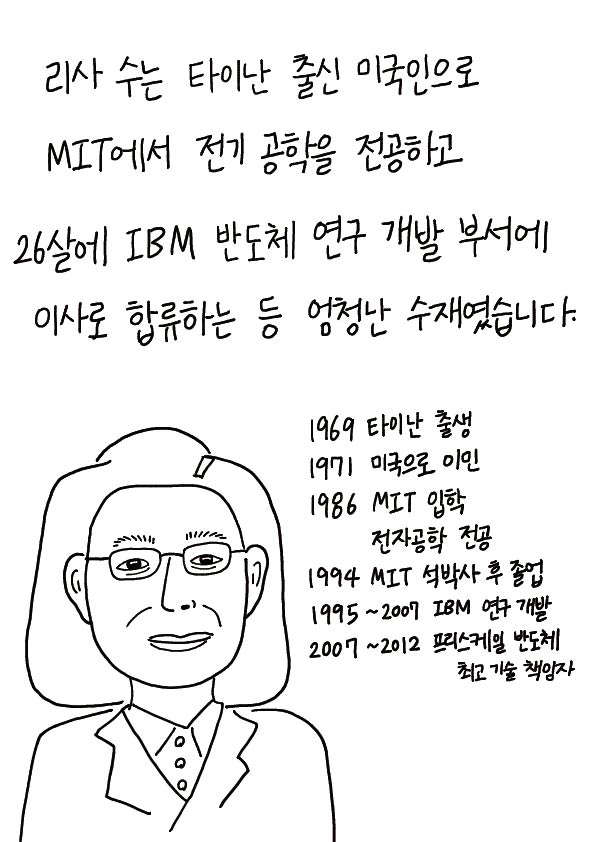 리사 수는 타이난 출신 미국인으로
MIT에서 전기 공학을 전공하고
26살에 IBM 반도체 연구 개발 부서에
이사로 합류하는 등 엄청난 수재였습니다.
1969 타이난 출생
1971 미국으로 이민
1986 MIT 입학
전자공학 전공
1994 MIT 석박사 후 졸업
1995~2007 IBM 연구 개발
2007~2012 프리스케일 반도체
최고 기술 책임자